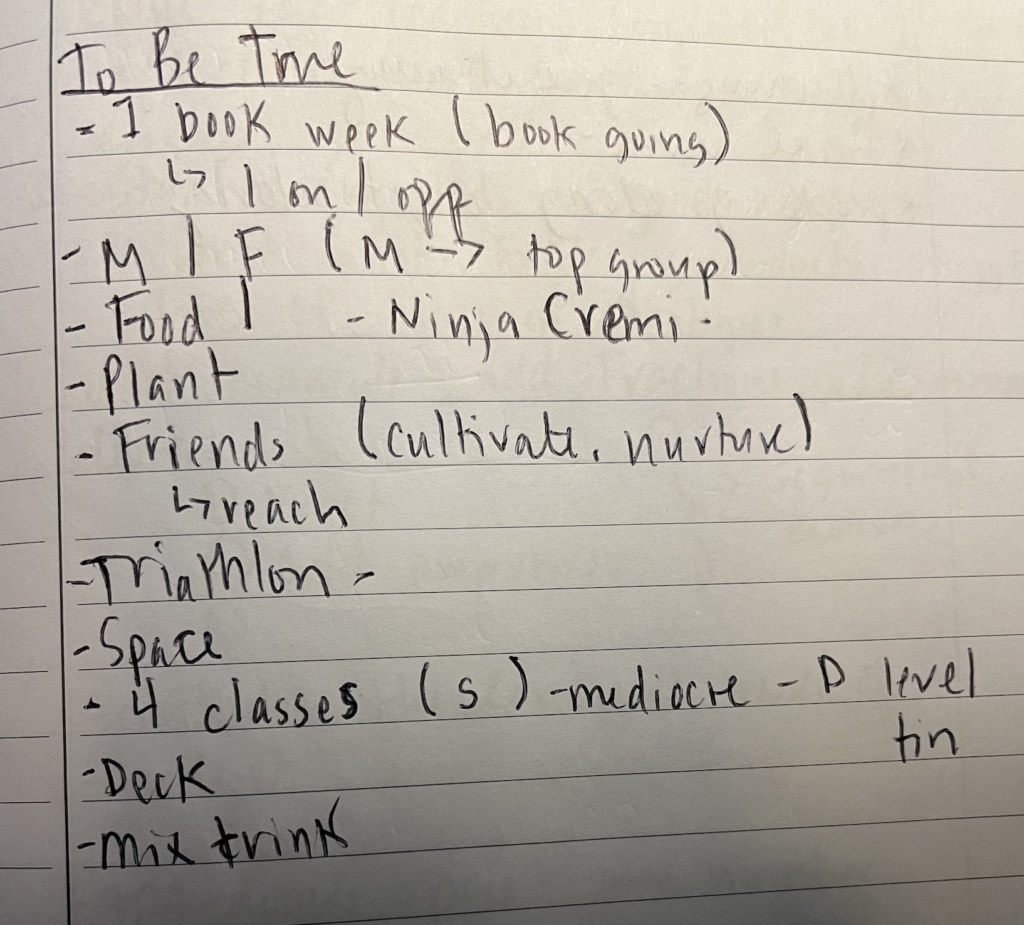 To Be True
- 1 book week (book going)
↳ 1 on 1 opp
- M | F (M -> top group)
- Food | - Ninja Cremi.
- Plant
- Friends (cultivate, nurture)
↳ reach
- Triathlon -
- Space
- 4 classes (s) - mediocre - D level
fin
- Deck
- mix